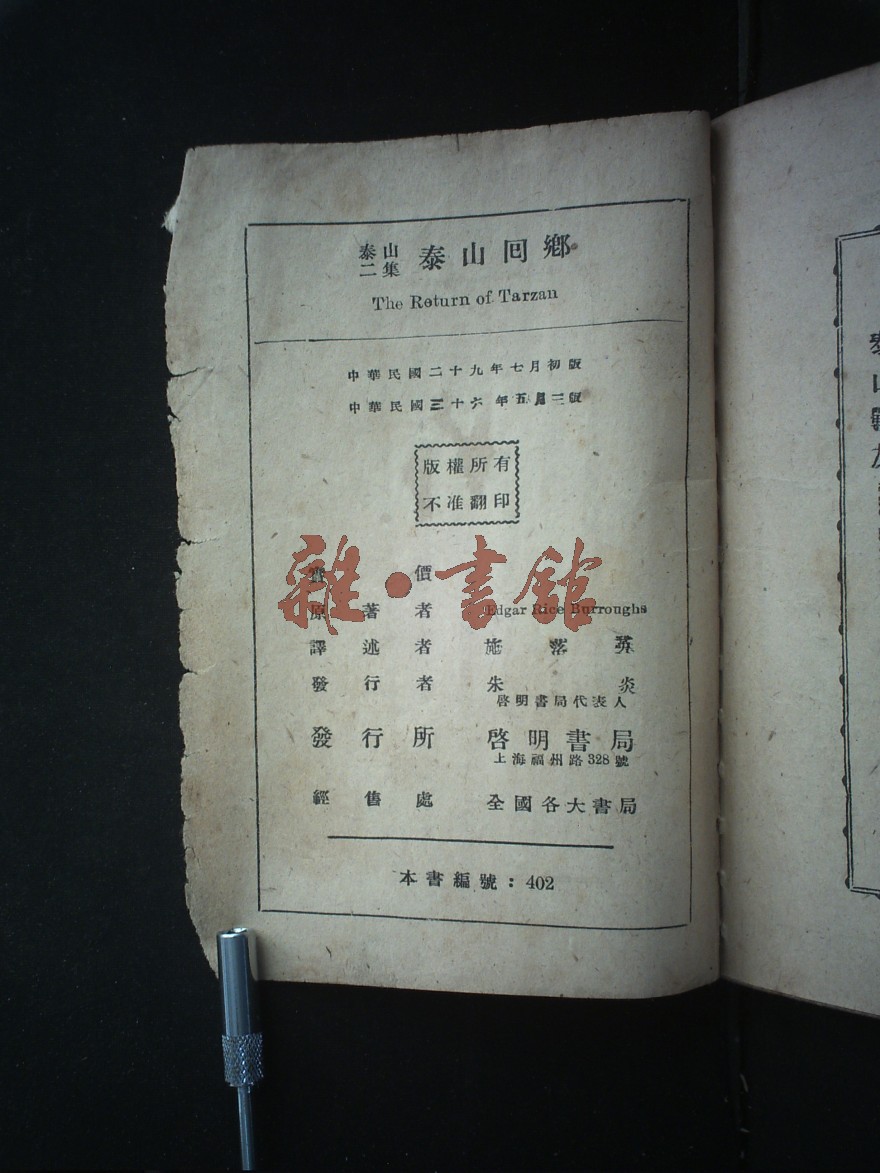 泰山二集 泰山囘鄉
The Return of Tarzan
中華民國二十九年七月初版
中華民國三十六年五月三版
版權所有
不准翻印
雜·書館
實價
原著者 Edgar Rice Burroughs
譯述者 施落英
發行者 朱炎
啓明書局代表人
發行所 啓明書局
上海福州路328號
經售處 全國各大書局
本書編號：402
泰山